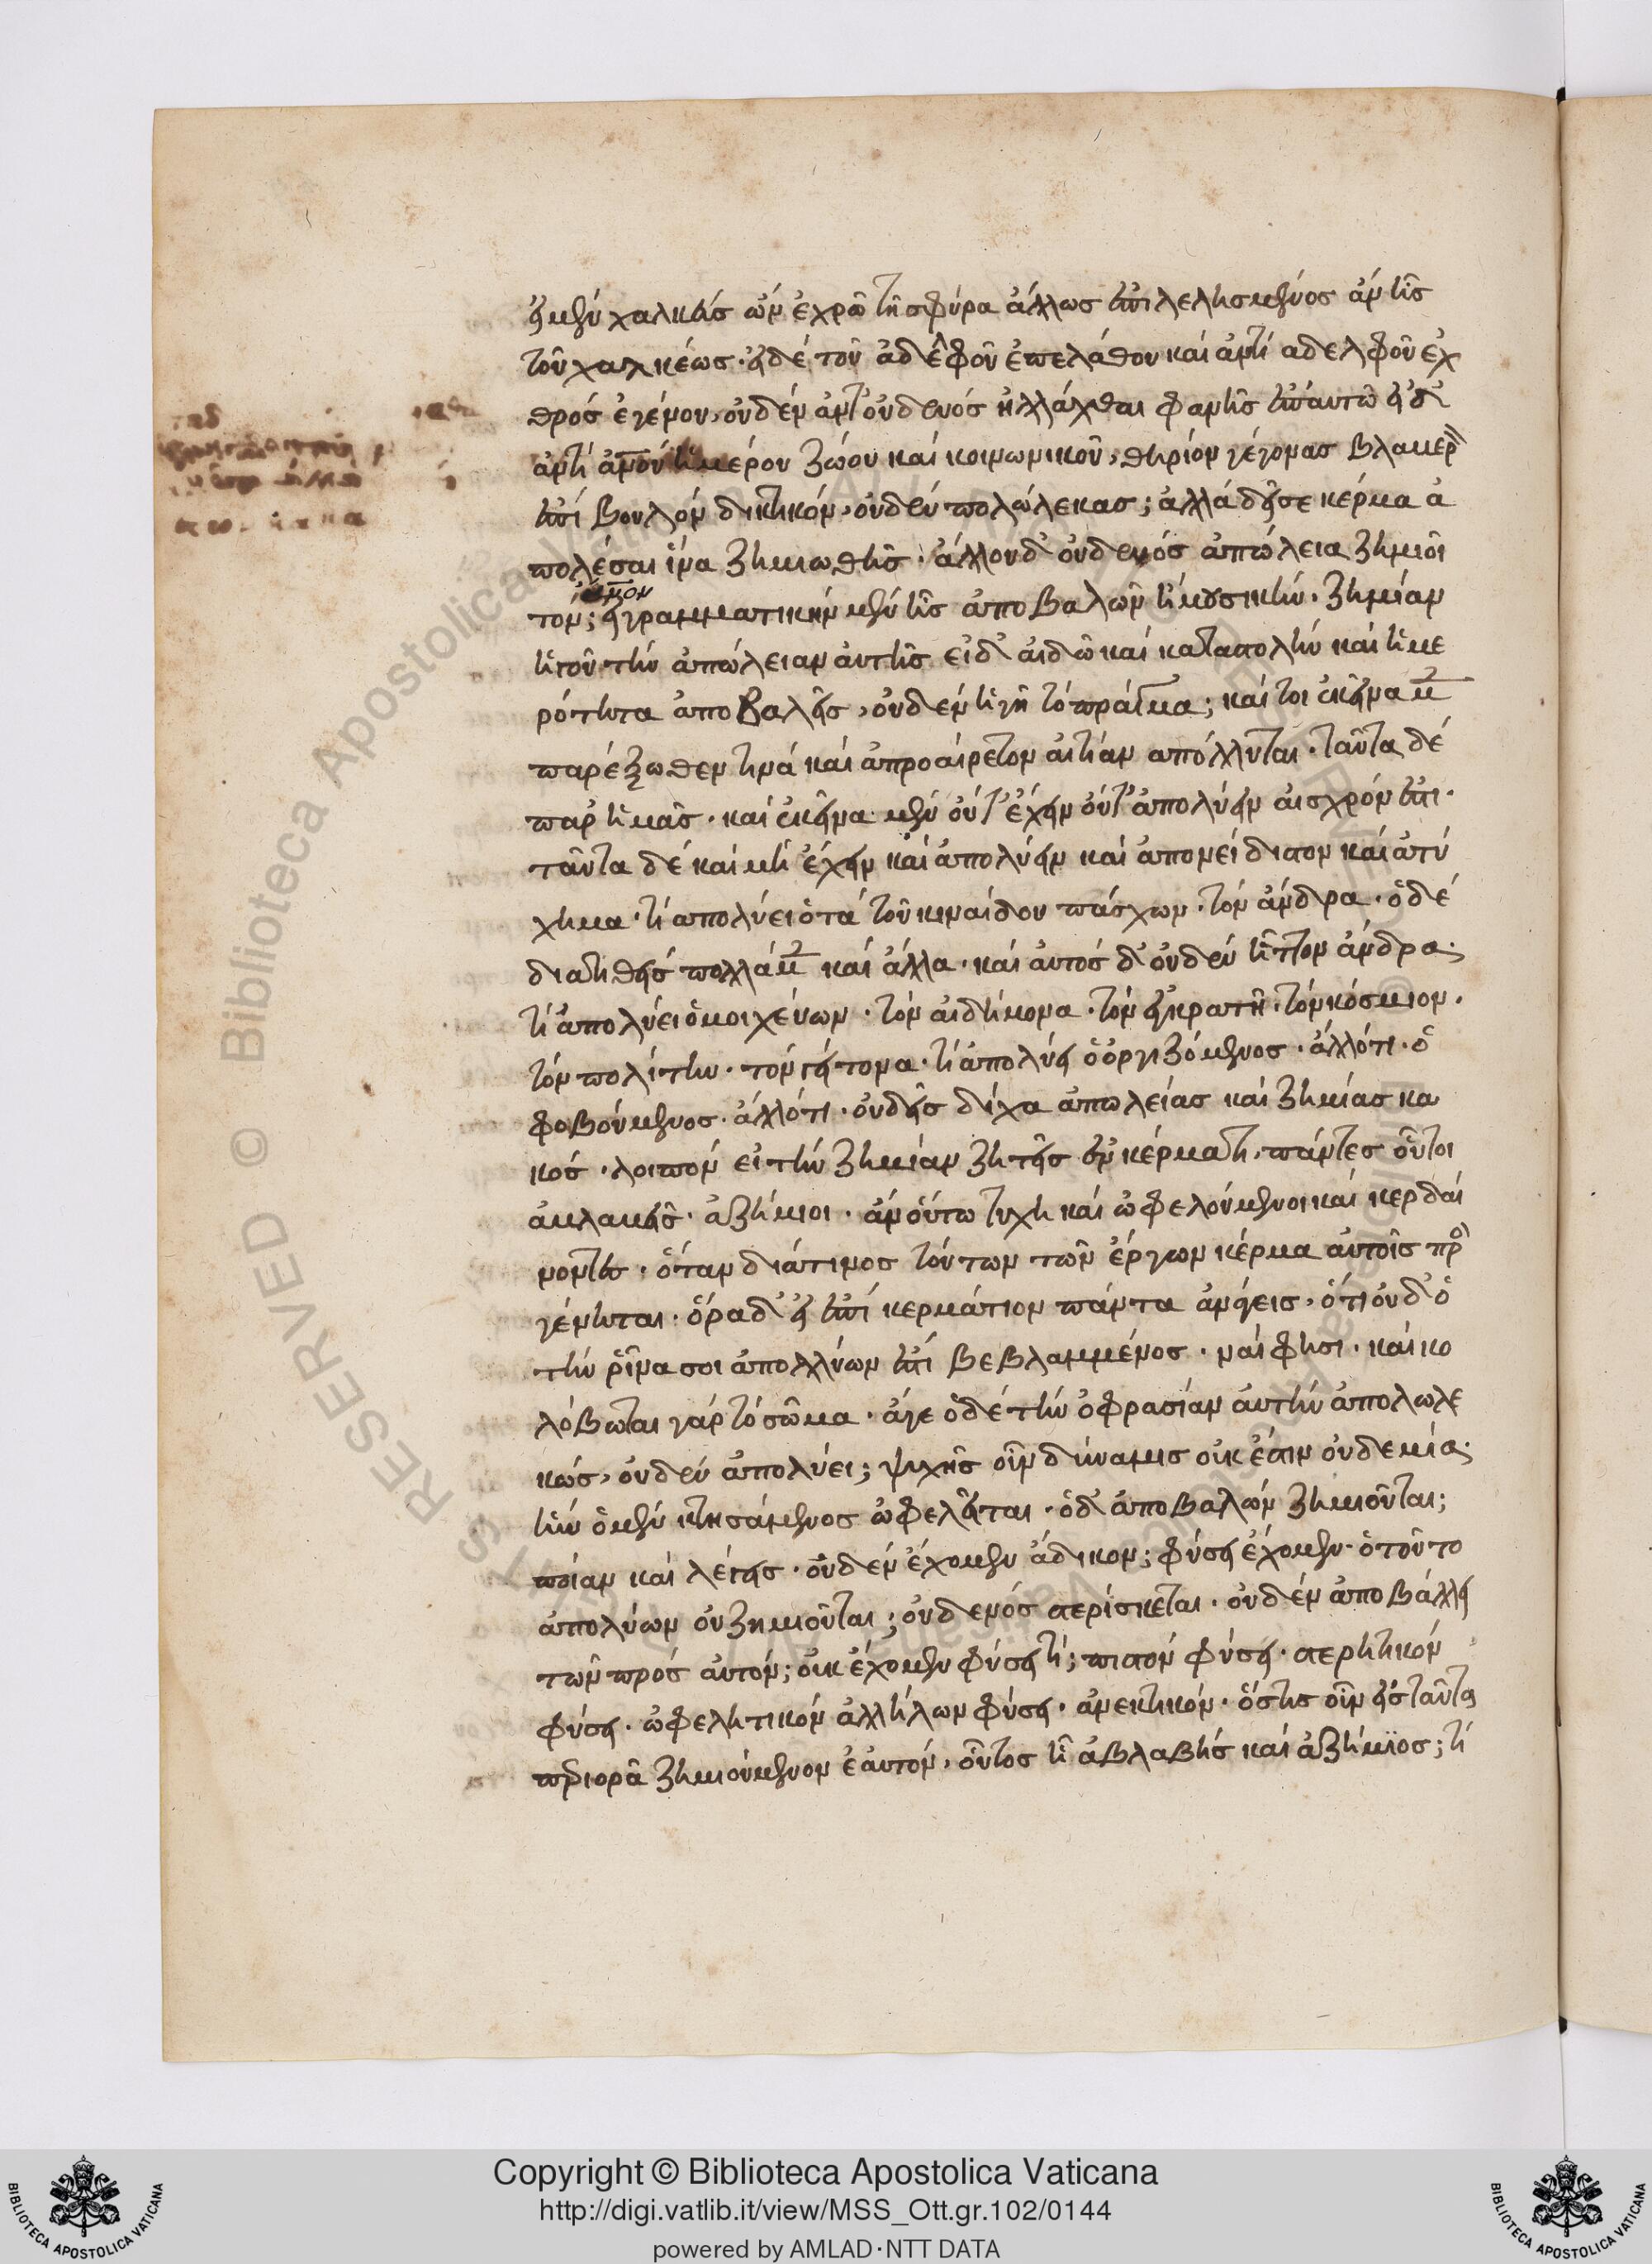 εἰ μὲν χαλκεὺς ὢν ἐχρῶ τῆ σφύρα ἄλλως ἐπιλελησμένος ἂν ἦς
τοῦ χαλκέως· εἰ δὲ τοῦ ἀδελφοῦ ἐπελάθου καὶ ἀντὶ αδελφοῦ ἐχ
θρὸς ἐγένου, οὐδὲν ἀντ' οὐδενὸς ἠλλάχθαι φανῆς ἐπ' αυτῶ εἰ δ'
ἀντὶ ἀνου ἡμέρου ζώου καὶ κοινωνικοῦ, θηρίον γέγονας βλαβερ
ἐπί βουλον δηκτικόν, οὐδὲν πολώλεκας; ἀλλὰ δεῖ σε κέρμα ἀ
πολέσαι ἵνα ζημιωθῆς· ἄλλου δ' οὐδενὸς ἀπώλεια ζημιοῖ
τὸν ανον; εἰ γραμματικὴν μὲν ἦς ἀποβαλὼν ἢ μουσικήν· ζημίαν
ἡγοῦ τὴν ἀπώλειαν ἀυτῆς εἰ δ' ἀιδῶ καὶ καταστολὴν καὶ ἡμε
ρότητα ἀποβαλεῖς, οὐδὲν ἡγῆ τὸ πρᾶγμα; καί τοι ἐκεῖνα μ
παρέξωθεν τινὰ καὶ ἀπροαίρετον ἀιτίαν απόλλυται· ταῦτα δὲ
παρ ἡμᾶς· καὶ ἐκεῖνα μὲν οὔτ' ἔχειν οὔτ' ἀπολύειν αισχρόν ἐστι·
ταῦτα δὲ καὶ μὴ ἔχειν καὶ ἀπολύειν καὶ ἀπονείδιστον καὶ ἀτύ
χημα· τί απολύει ὁ τὰ τοῦ κιναίδου πάσχων· τὸν ἄνδρα· ὁ δὲ
διατιθεὶς πολλὰ μ καὶ ἄλλα· καὶ ἀυτὸς δ' οὐδὲν ἧττον ἄνδρα·
τί ἀπολύει ὁ μοιχεύων· τὸν αἰδήμονα· τὸν ἐγκρατῆ· τὸν κόσμιον·
τὸν πολίτην· τὸν γείτονα· τί ἀπολύει ὁ ὀργιζόμενος· ἄλλό τι· ὁ
φοβούμενος· ἄλλό τι· οὐδεὶς δίχα ἀπωλείας καὶ ζημίας κα
κός· λοιπὸν εἰ τὴν ζημίαν ζητεῖς ἐν κέρματι, πάντες οὗτοι
ἀβλαβεῖς· ἀζήμιοι· ἂν οὕτω τύχη καὶ ὠφελούμενοι καὶ κερδαί
νοντες· ὅταν διά τινος τούτων τῶν ἔργων κέρμα ἀυτοῖς πρ
γένηται· ὅρα δ' εἰ ἐπὶ κερμάτιον πάντα ἀνάγεις, ὅτι οὐδ' ὁ
τὴν ῥῖνα σοι ἀπολλύων ἐστί βεβλαμμένος· ναὶ φησι· καὶ κο
λόβωται γὰρ τὸ σῶμα· ἄγε ὁ δὲ τὴν ὀφρασίαν ἀυτὴν ἀπολωλε
κώς, οὐδὲν ἀπολύει; ψυχῆς οὖν δύναμις οὐκ ἔστιν οὐδεμία·
ἣν ὁ μὲν κτησάμενος ὠφελεῖται· ὁ δ' ἀποβαλὼν ζημιοῦται;
ποίαν καὶ λέγεις· οὐδὲν ἔχομεν ἄδικον; φύσει ἔχομεν· ὁ τοῦτο
ἀπολύων οὐ ζημιοῦται; οὐδενὸς στερίσκεται· οὐδὲν ἀποβάλλει
τῶν πρὸς ἀυτόν; οὐκ ἔχομεν φύσει τί; πιστὸν φύσει· στερητικὸν
φύσει· ὠφελητικὸν ἀλλήλων φύσει· ἀνεκτικόν· ὅστις οὖν εἰς ταῦτα
περιορᾶ ζημιούμενον ἑαυτόν, οὗτος ἦ ἀβλαβὴς καὶ ἀζήμιος; τί